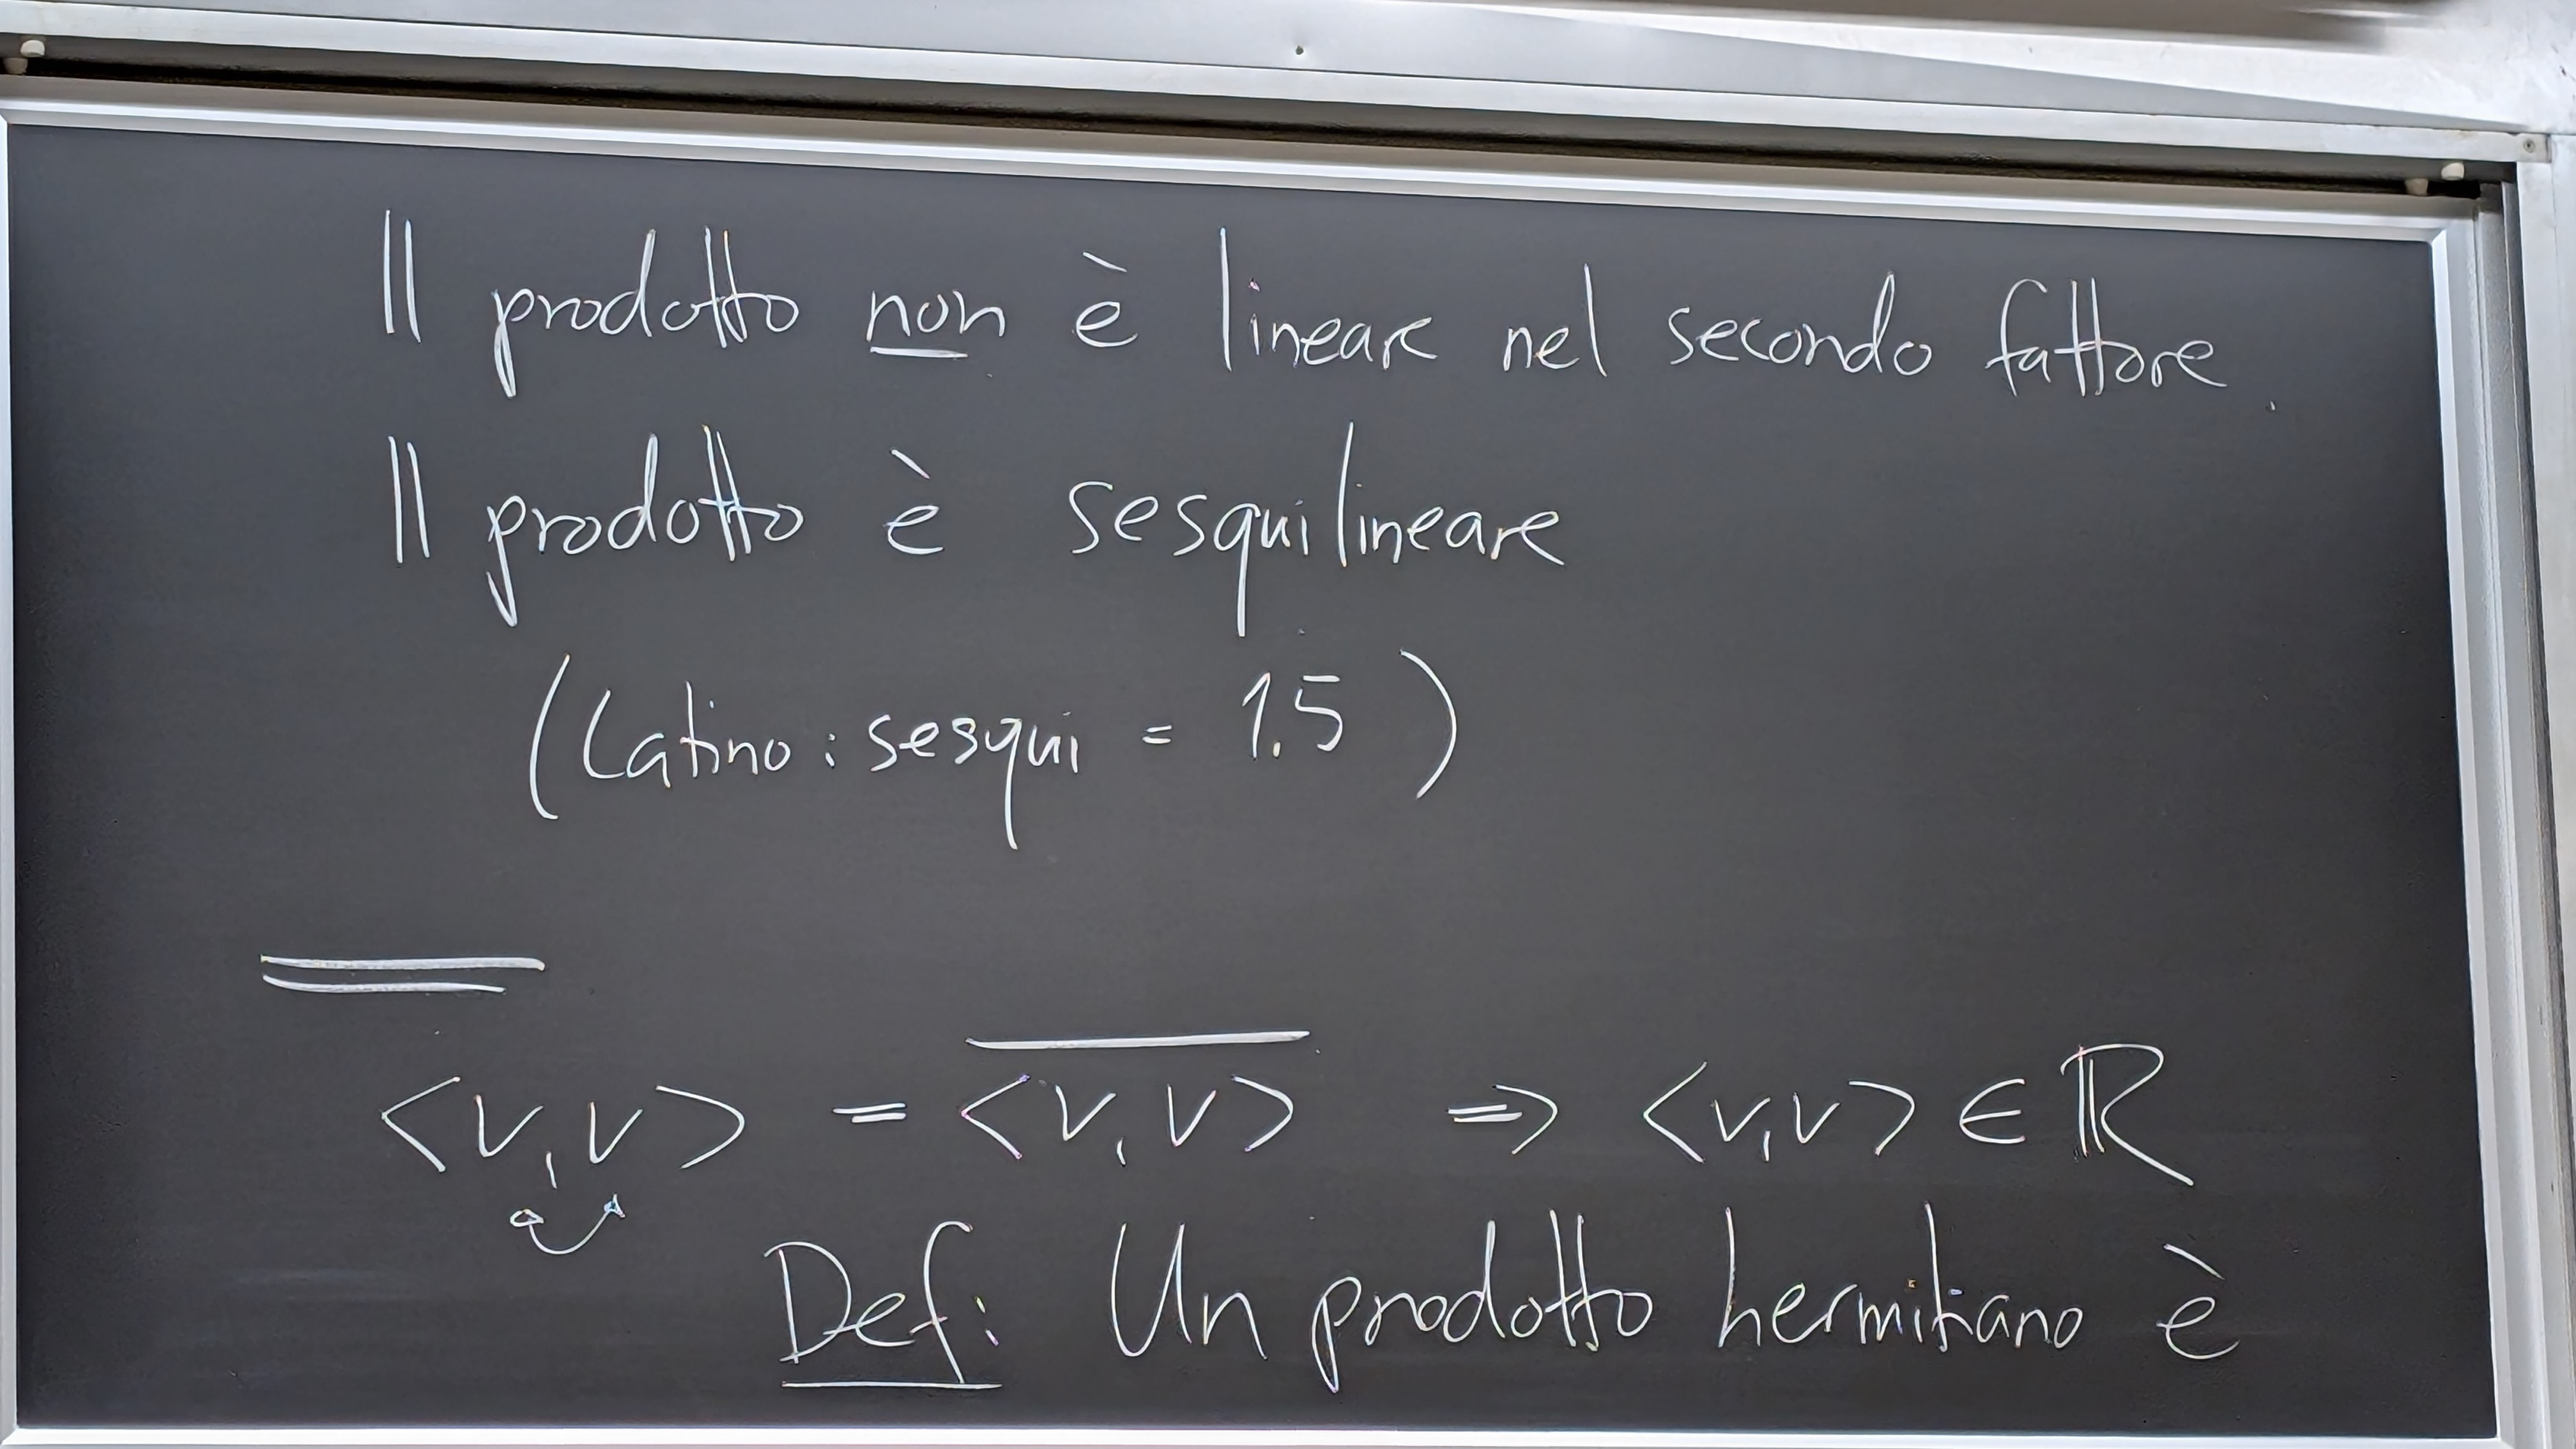 Il prodotto non è lineare nel secondo fattore.
Il prodotto è sesquilineare
(Latino: sesqui = 1.5)
<v,v> = \overline{<v,v>} ⇒ <v,v> ∈ ℝ
Def: Un prodotto hermitiano è